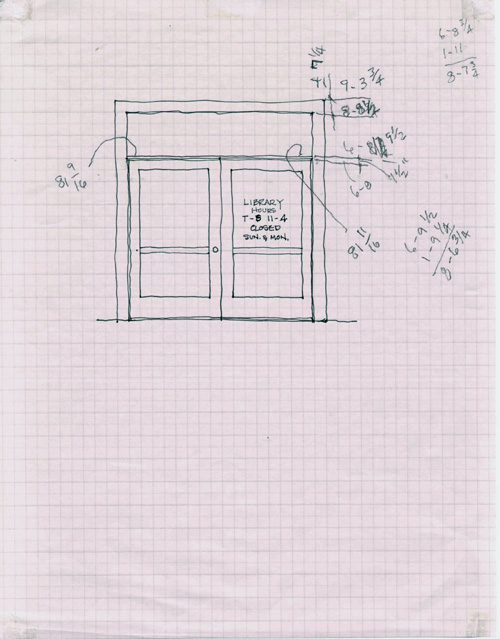 6-8 3/4
1-11
8-7 3/4
7 1/4
9-3 3/4
9 1/2
6-8
4 1/2"
81 9/16
LIBRARY
HOURS
T-S 11-4
CLOSED
SUN. & MON.
81 11/16
6-9 1/2
1-9 1/4
8-6 3/4